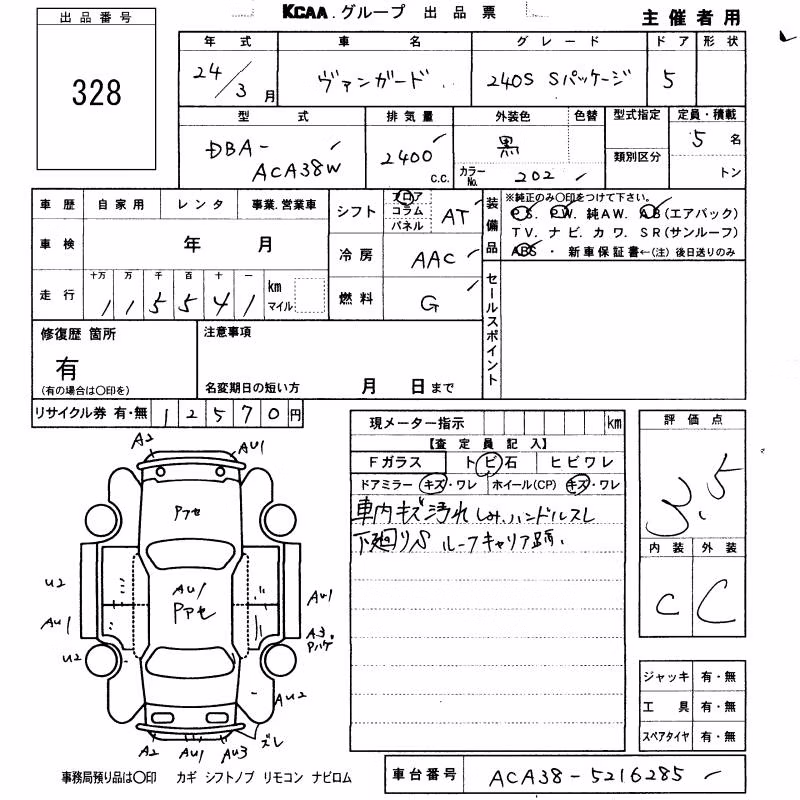 KCAA.グループ 出品票
主催者用
出品番号
328
年式 車名 グレード ドア 形状
24/3月 ヴァンガード 240S Sパッケージ 5
型式 排気量 外装色 色替 型式指定 定員・積載
DBA-ACA38W 2400 c.c. 黒 5名
カラーNo. 202 類別区分 トン
車歴 自家用 レンタ 事業.営業車
車検 年 月
走行 十万 万 千 百 十 一
115541 km マイル
シフト フロア コラム パネル AT
冷房 AAC
燃料 G
装備品 ※純正のみ〇印をつけて下さい。
PS. PW. 純AW. AB(エアバック)
TV. ナビ. カワ. SR(サンルーフ)
ABS ・ 新車保証書←(注)後日送りのみ
セールスポイント
修復歴 箇所
有
(有の場合は〇印を)
注意事項
名変期日の短い方 月 日まで
リサイクル券 有・無 12570円
現メーター指示 km
【査定員記入】
Fガラス トビ石 ヒビワレ
ドアミラー キズ・ワレ ホイール(CP) キズ・ワレ
車内キズ汚れ しみ.ハンドルスレ
下廻りS ルーフキャリア跡.
評価点
3.5
内装 外装
C C
ジャッキ 有・無
工具 有・無
スペアタイヤ 有・無
A2 AU1
Pアセ
U2
AU1
PアセAU1
AU1
A3.
Pハゲ
U2
AU2
A2 AU1 AU3 ズレ
事務局預り品は〇印 カギ シフトノブ リモコン ナビロム
車台番号 ACA38-5216285